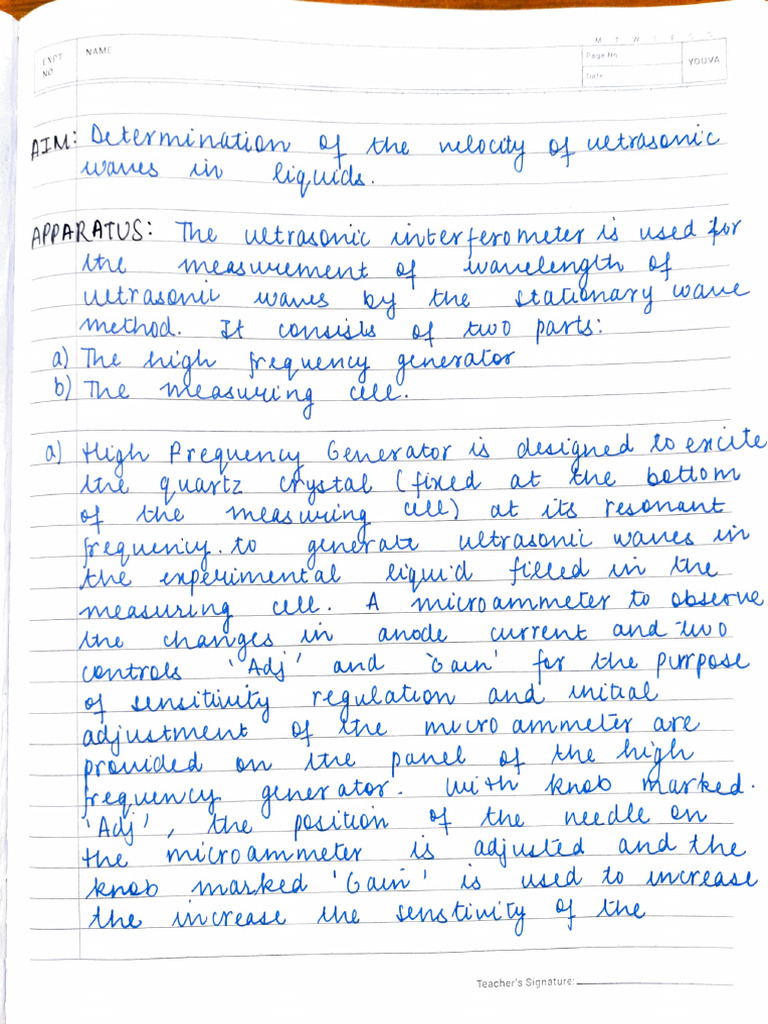 M T W T F S S
EXPT NO
NAME
Page No
Date
YOUVA
AIM: Determination of the velocity of ultrasonic
waves in liquids.
APPARATUS: The ultrasonic interferometer is used for
the measurement of wavelength of
ultrasonic waves by the stationary wave
method. It consists of two parts:
a) The high frequency generator
b) The measuring cell.
a) High Frequency Generator is designed to excite
the quartz crystal (fixed at the bottom
of the measuring cell) at its resonant
frequency. to generate ultrasonic waves in
the experimental liquid filled in the
measuring cell. A microammeter to observe
the changes in anode current and two
controls 'Adj' and 'Gain' for the purpose
of sensitivity regulation and initial
adjustment of the micro ammeter are
provided on the panel of the high
frequency generator. With knob marked.
'Adj', the position of the needle on
the microammeter is adjusted and the
knob marked 'Gain' is used to increase
the increase the senstivity of the
Teacher's Signature: